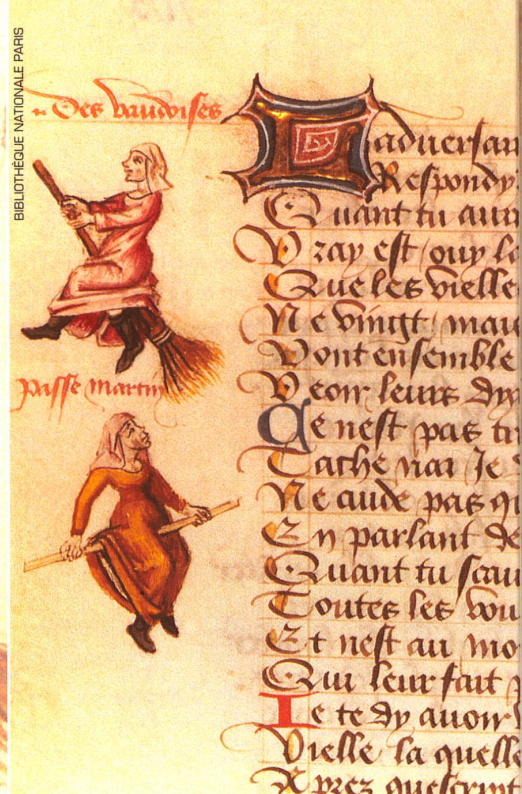 BIBLIOTHÈQUE NATIONALE PARIS
Des vaudoises
passe martin
Ladversair
Respondy
Quant tu aura
Vray est ouy lo
Que les vielle
Ne vingt mau
Vont ensemble
Veoir leurs dy
Ce nest pas tr
Cache nai Je
Ne cuide pas q
En parlant de
Quant tu scau
Toutes les vou
Et nest au mo
Qui leur fait
Je te dy avoir
Vielle la quelle
Aprez quescript